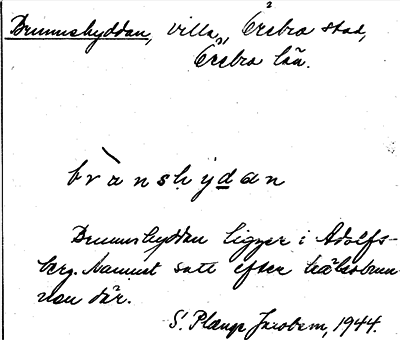 Brunnshyddan, villa, Örebro stad,
Örebro län.
brànshydan
Brunnshyddan ligger i Adolfs-
berg. Namnet satt efter hälsobrun-
nen där.
S. Plænge Jacobson, 1944.